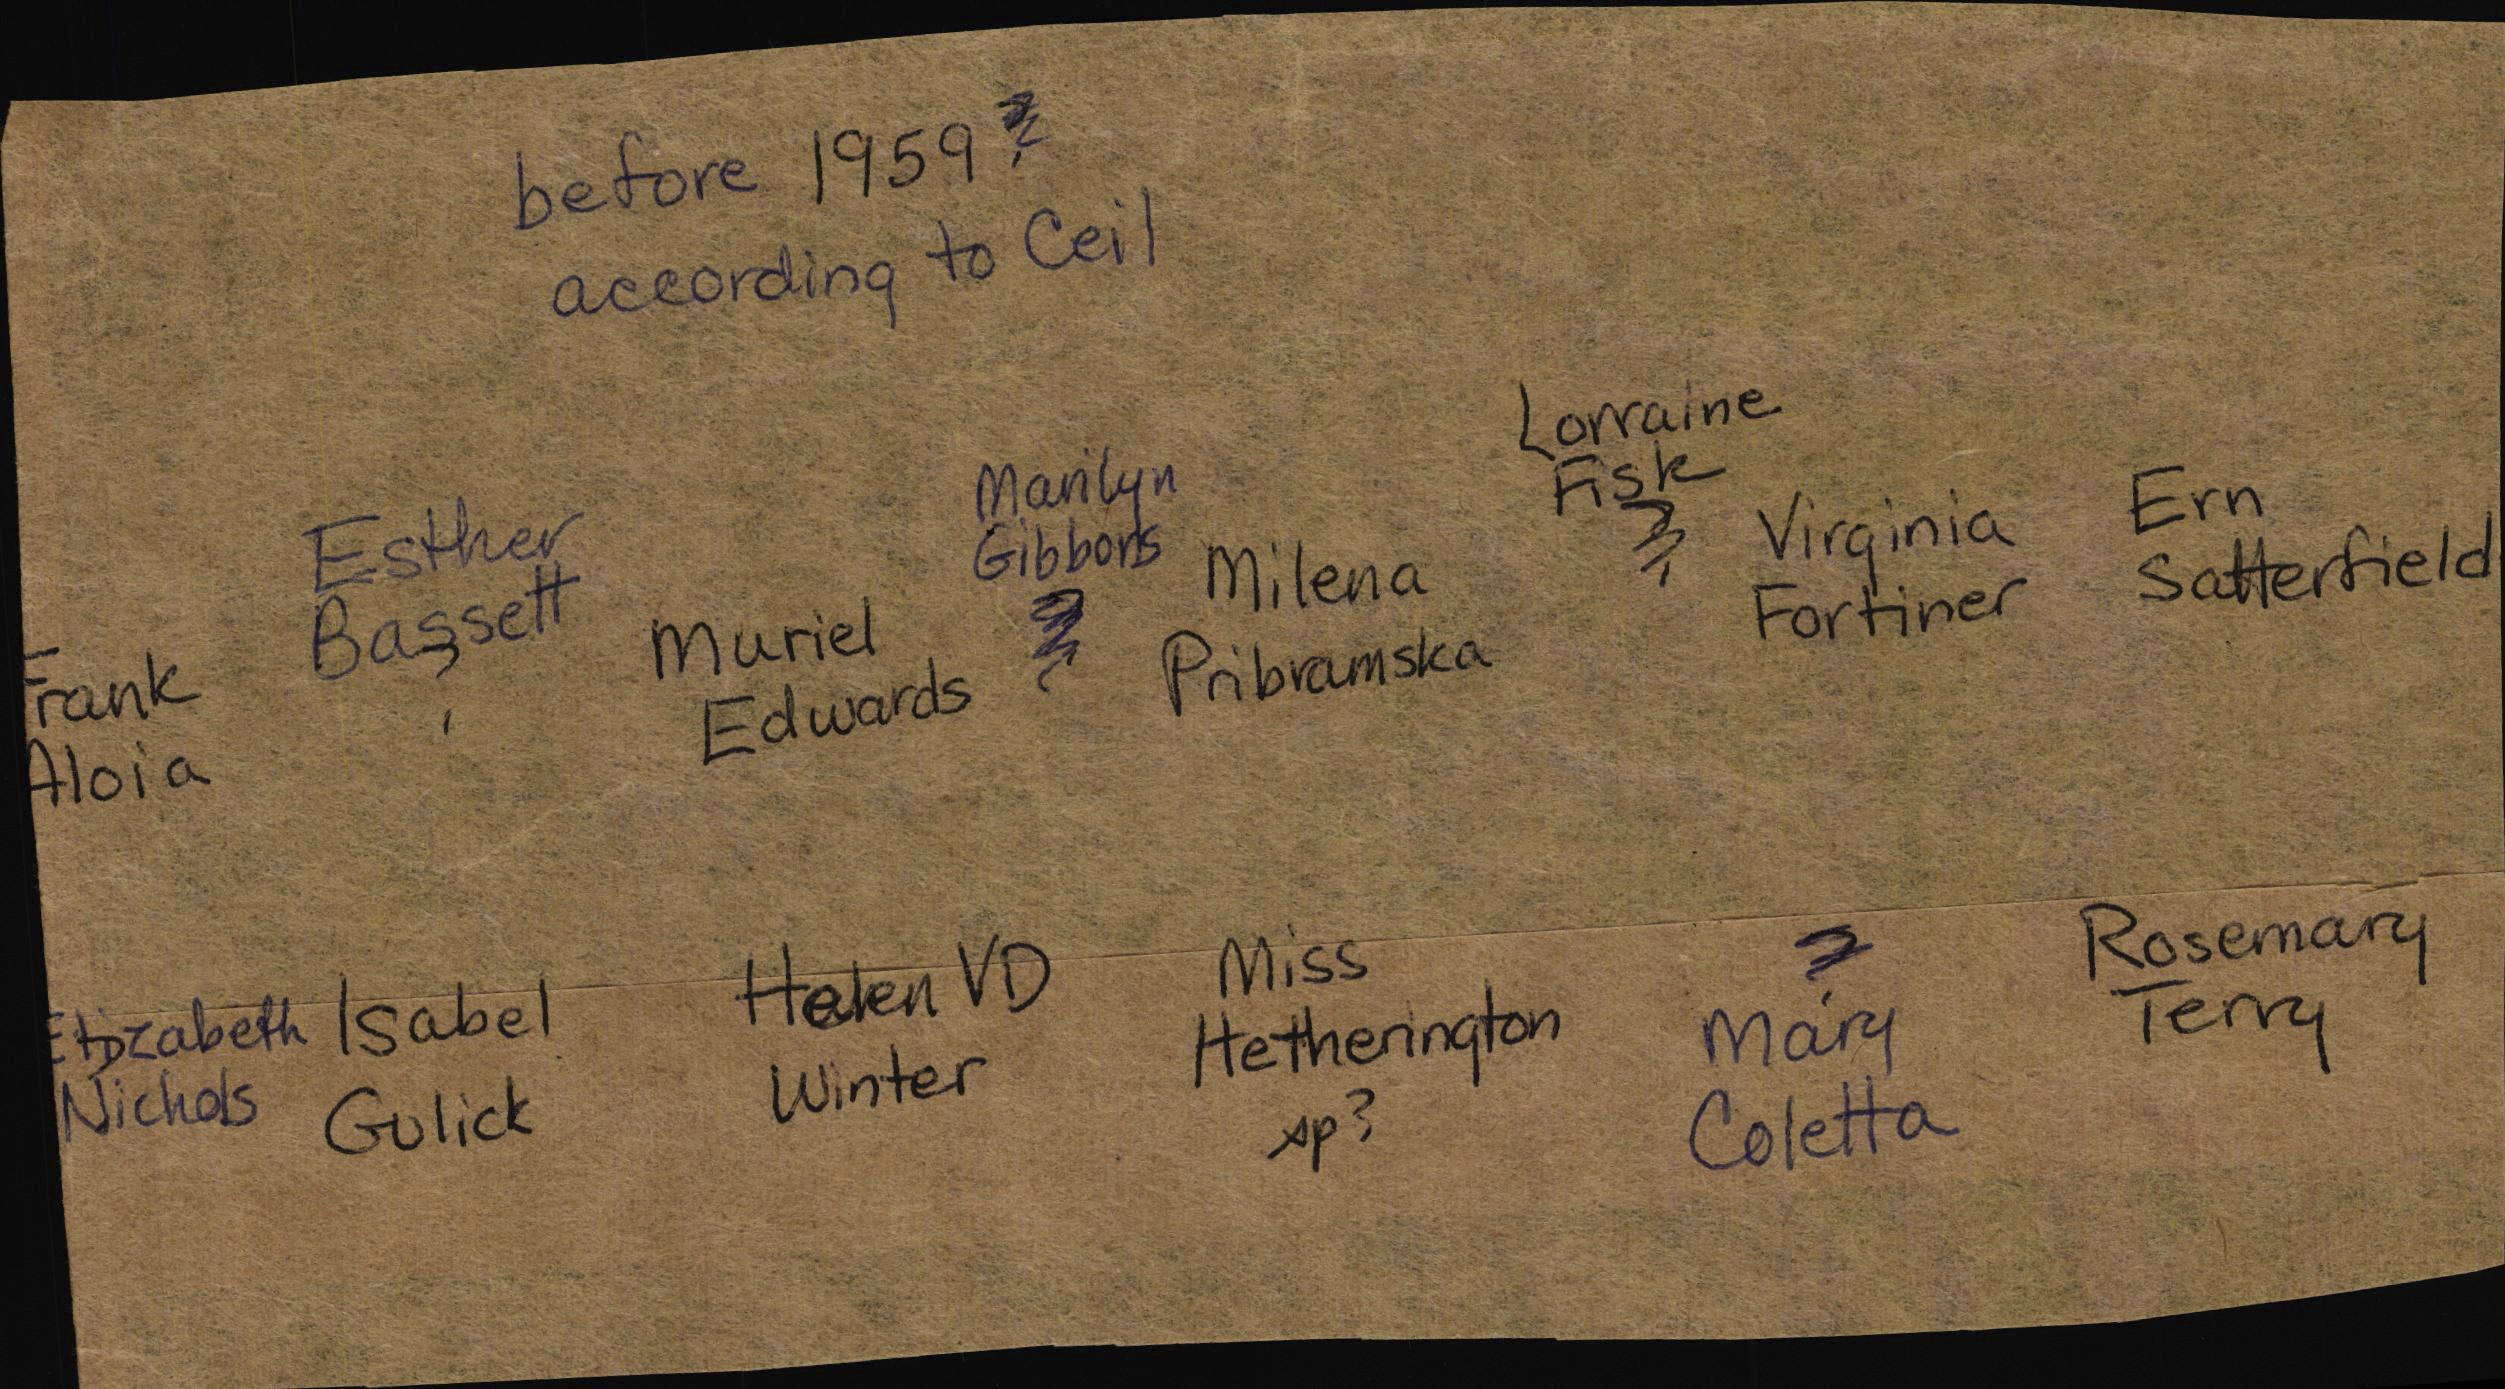 before 1959
according to Ceil
Lorraine
Fisk
Marilyn
Gibbons
Esther
Bassett
?
Ern
Satterfield
Virginia
Fortiner
Milena
Pribramska
Muriel
Edwards
Frank
Aloia
Elizabeth
Nichols
Isabel
Gulick
Helen VD
Winter
Miss
Hetherington
sp?
Mary
Coletta
Rosemary
Terry